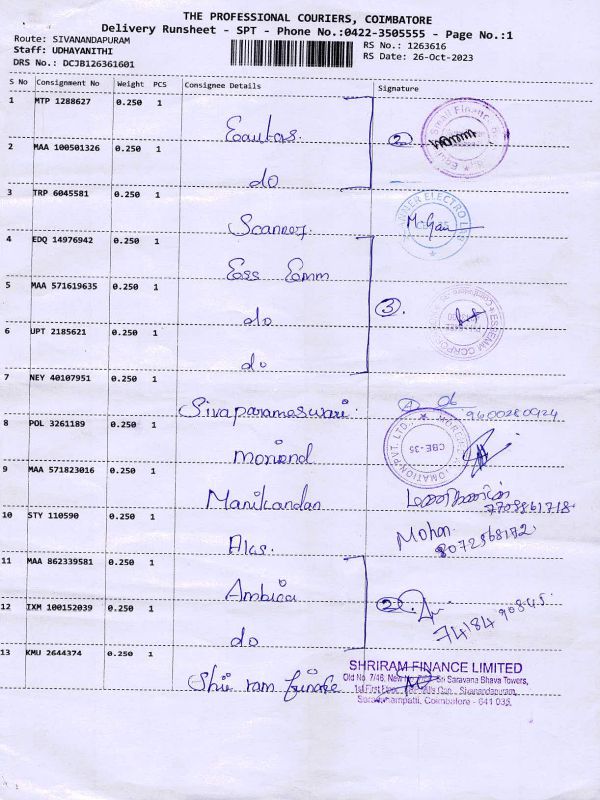 THE PROFESSIONAL COURIERS, COIMBATORE
Delivery Runsheet - SPT - Phone No.:0422-3505555 - Page No.:1
Route: SIVANANDAPURAM
RS No.: 1263616
Staff: UDHAYANITHI
RS Date: 26-Oct-2023
DRS No.: DCJB126361601
S No Consignment No Weight PCS Consignee Details Signature
1 MTP 1288627 0.250 1
Equitas
2 MAA 100501326 0.250 1
do
3 TRP 6045581 0.250 1
Scanner
4 EDQ 14976942 0.250 1
Ess Emm
5 MAA 571619635 0.250 1
do
3
6 UPT 2185621 0.250 1
do
7 NEY 40107951 0.250 1
Sivaparameswari
9600280924
8 POL 3261189 0.250 1
CBE-35
9 MAA 571823016 0.250 1
Manikandan
மணிகண்டன்
7708861718
10 STY 110590 0.250 1
Mohan
8072568172
11 MAA 862339581 0.250 1
Ambica
12 IXM 100152039 0.250 1
do
2
74184 90845
13 KMU 2644374 0.250 1
Shri ram finance
SHRIRAM FINANCE LIMITED
Old No. 7/46, New Sri Saravana Bhava Towers,
1st First Floor, Sivanandapuram,
Saravanampatti, Coimbatore - 641 035.